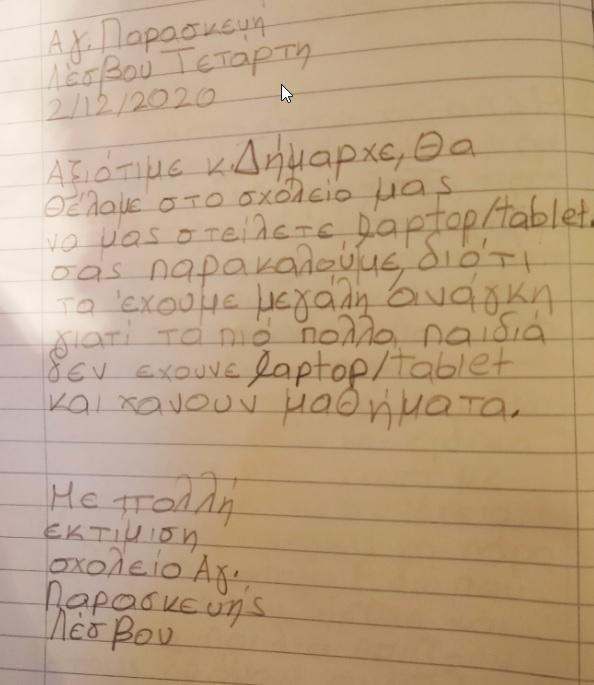 Αγ. Παρασκευή
Λέσβου Τετάρτη
2/12/2020
Αξιότιμε κ.Δήμαρχε, Θα
θέλαμε στο σχολείο μας
να μας στείλετε laptop/tablet.
σας παρακαλούμε, διότι
τα έχουμε μεγάλη ανάγκη
γιατί τα πιό πολλα παιδιά
δεν εχουνε laptop/tablet
και χανουν μαθήματα.
Με πολλή
εκτίμιση
σχολείο Αγ.
Παρασκευής
Λέσβου